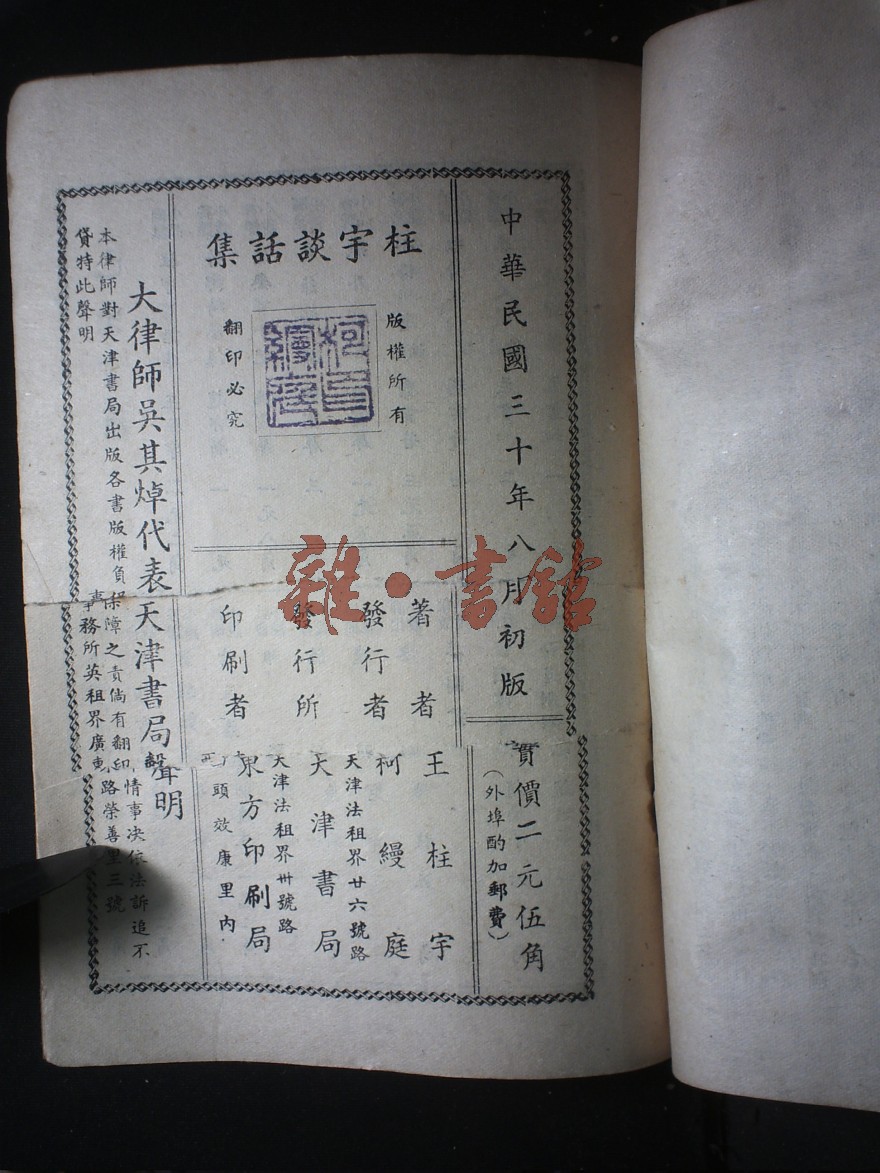 中華民國三十年八月初版
實價二元伍角
（外埠酌加郵費）
柱宇談話集
版權所有
翻印必究
著者 王柱宇
發行者 柯縵庭
天津法租界廿六號路
發行所 天津書局
天津法租界卅號路
印刷者 東方印刷局
西頭效康里內
大律師吳其焯代表天津書局聲明
本律師對天津書局出版各書版權負保障之責倘有翻印情事決依法訴追不
貸特此聲明
事務所英租界廣東路榮善里三號
雜·書館